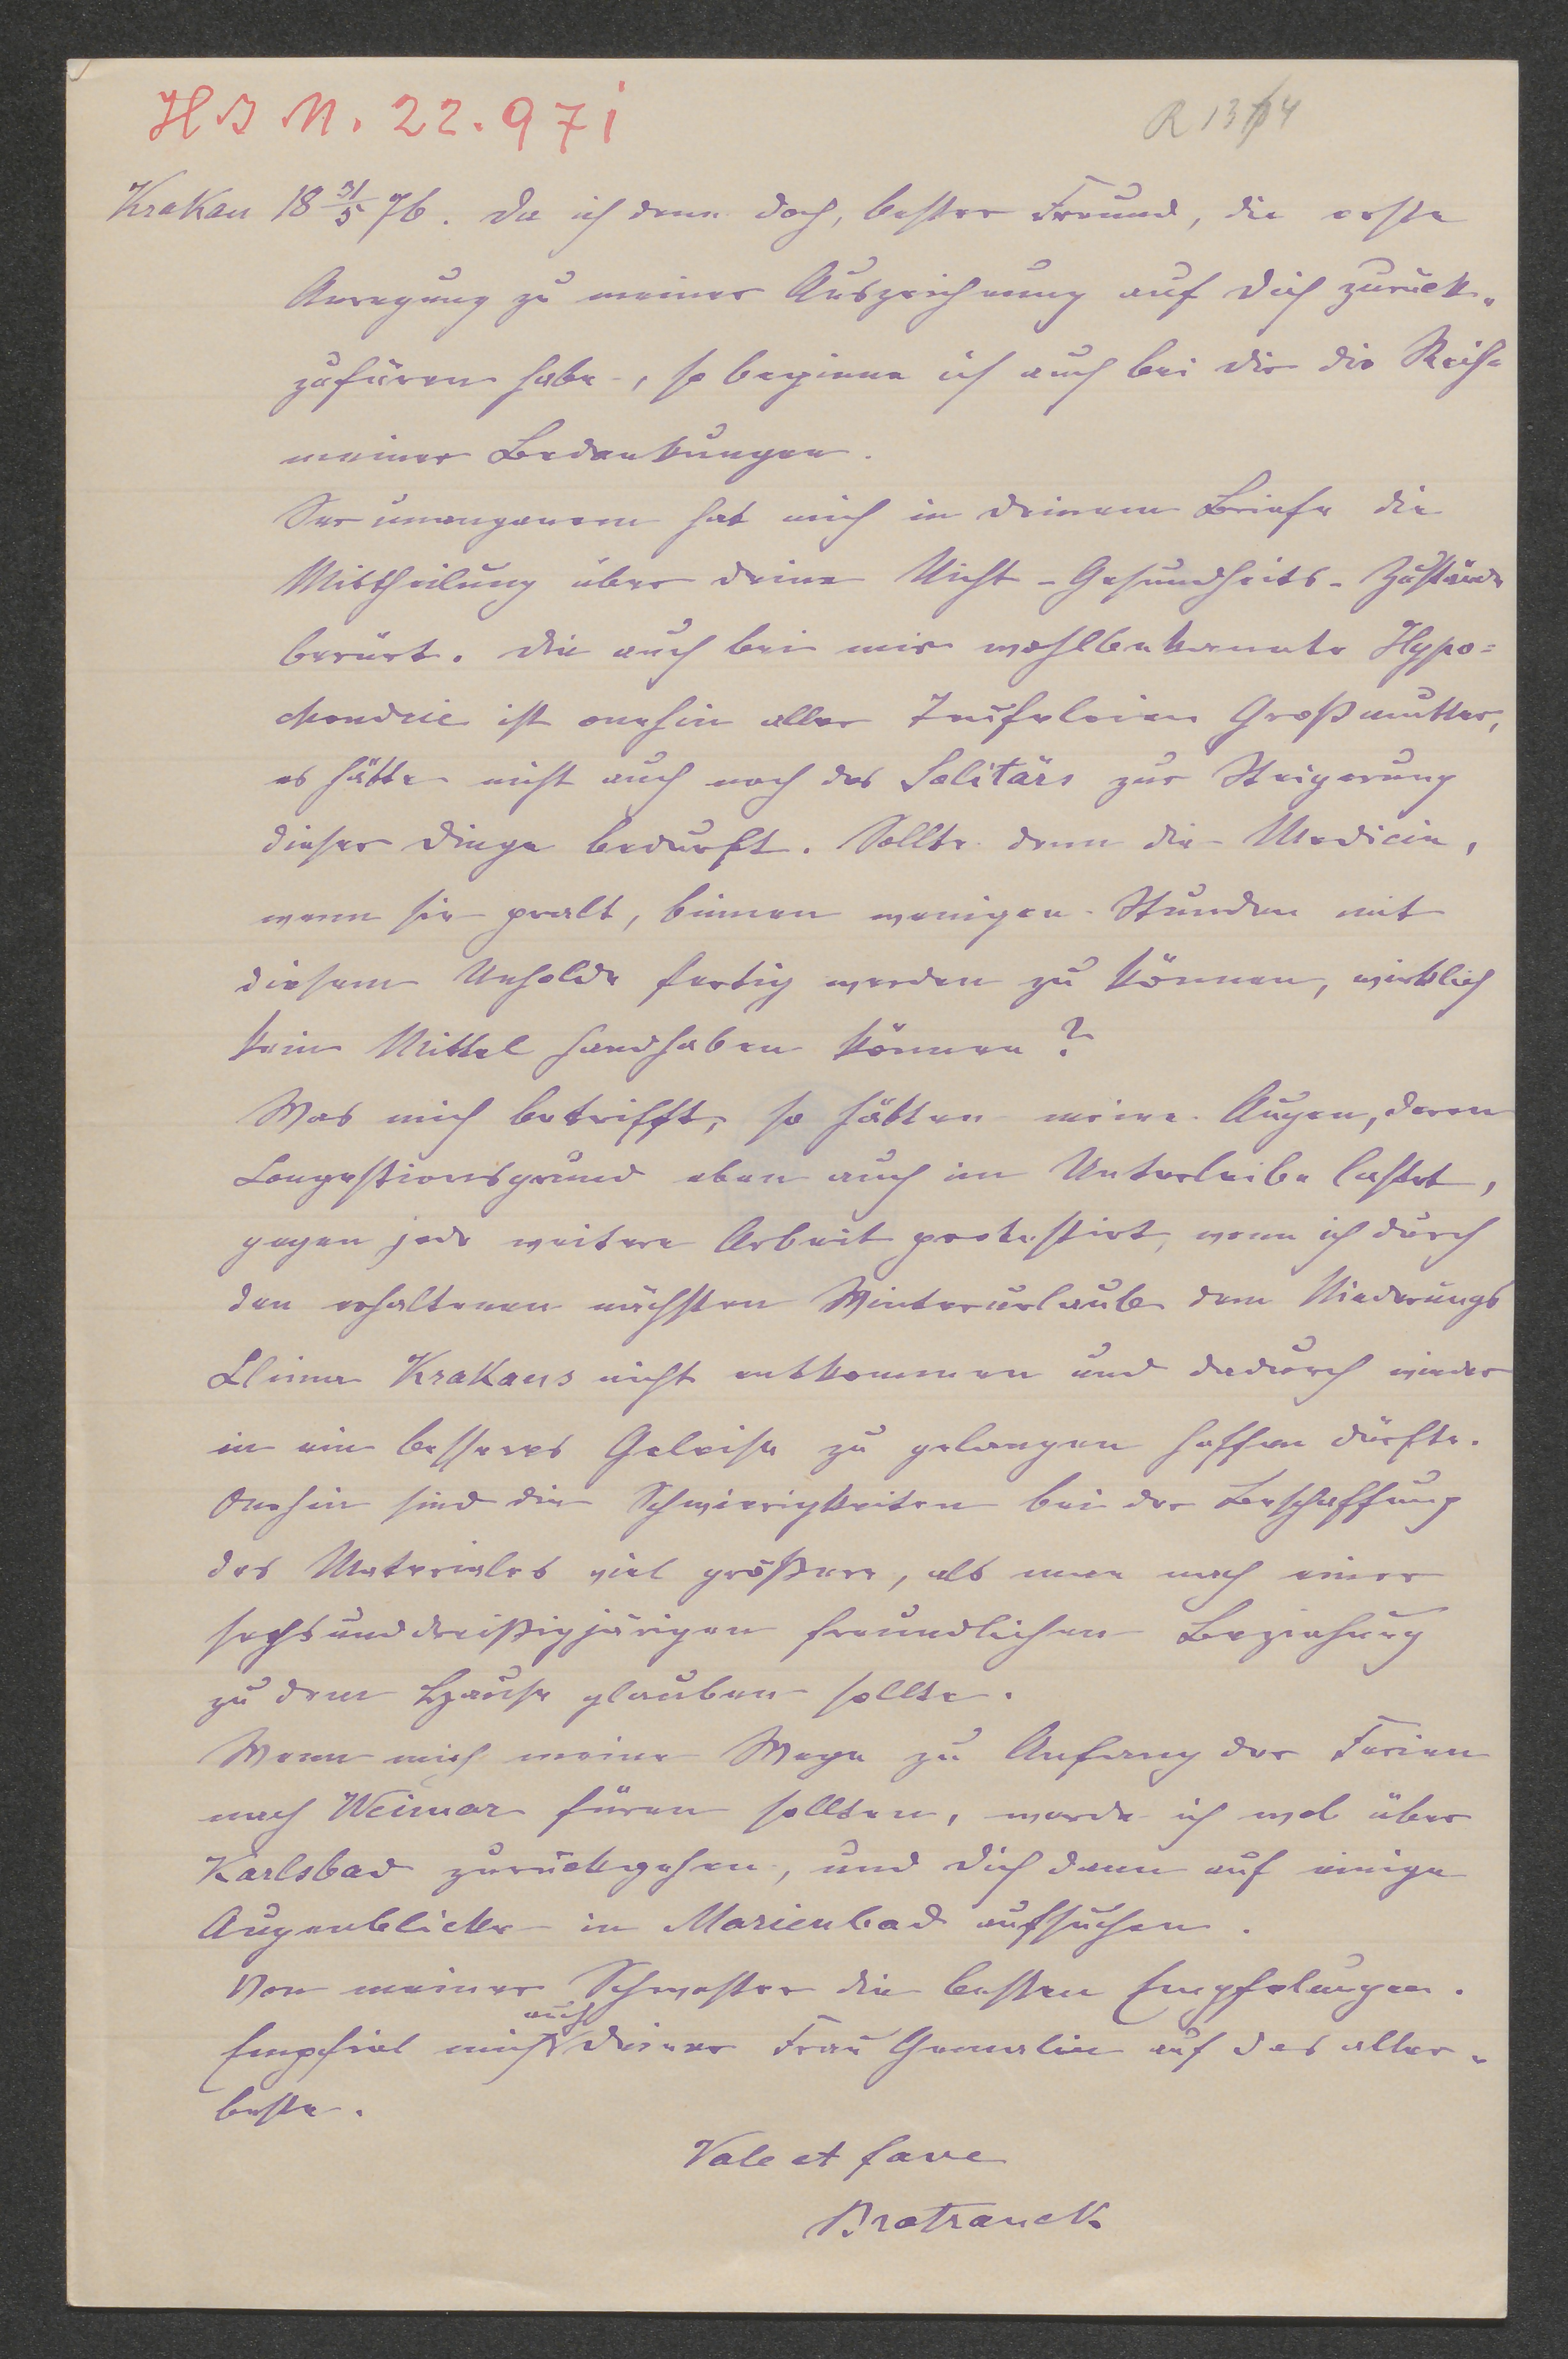 H I N. 22.971
R 1314
Krakau 18 31/5 76. Da ich denn doch, bester Freund, die erste
Anregung zu meiner Auszeichnung auf dich zurück-
zufüren habe, so beginne ich auch bei dir die Reihe
meiner Bedankungen.
Ser unangenem hat mich in deinem Briefe die
Mittheilung über deine Nicht-Gesundheits-Zustände
berürt. Die auch bei mir wohlbekannte Hypo=
chondrie ist onehin aller Teufeleien Großmutter,
es hätte nicht auch noch des Solitärs zur Steigerung
dieser Dinge bedurft. Sollte denn die Medicin,
wenn sie pralt, binnen wenigen Stunden mit
diesem Unholde fertig werden zu können, wirklich
kein Mittel handhaben können?
Was mich betrifft, so hätten meine Augen, deren
Congestionsgrund eben auch im Unterleibe lastet,
gegen jede weitere Arbeit protestirt, wenn ich durch
den erhaltenen nächsten Winterurlaub dem Niederungs
Clima Krakaus nicht entkommen und dadurch wieder
in ein besseres Geleise zu gelangen hoffen dürfte.
Onehin sind die Schwierigkeiten bei der Beschaffung
des Materiales viel größere, als man nach einer
sechsunddreißigjärigen freundlichen Beziehung
zu dem Hause glauben sollte.
Wenn mich meine Wege zu Anfang der Ferien
nach Weimar füren sollten, werde ich wol über
Karlsbad zurückgehen, und dich dann auf einige
Augenblicke in Marienbad aufsuchen.
Von meiner Schwester die besten Empfelungen.
Empfiel mich auch deiner Frau Gemalin auf das aller-
beste.
Vale et fave
Bratranek